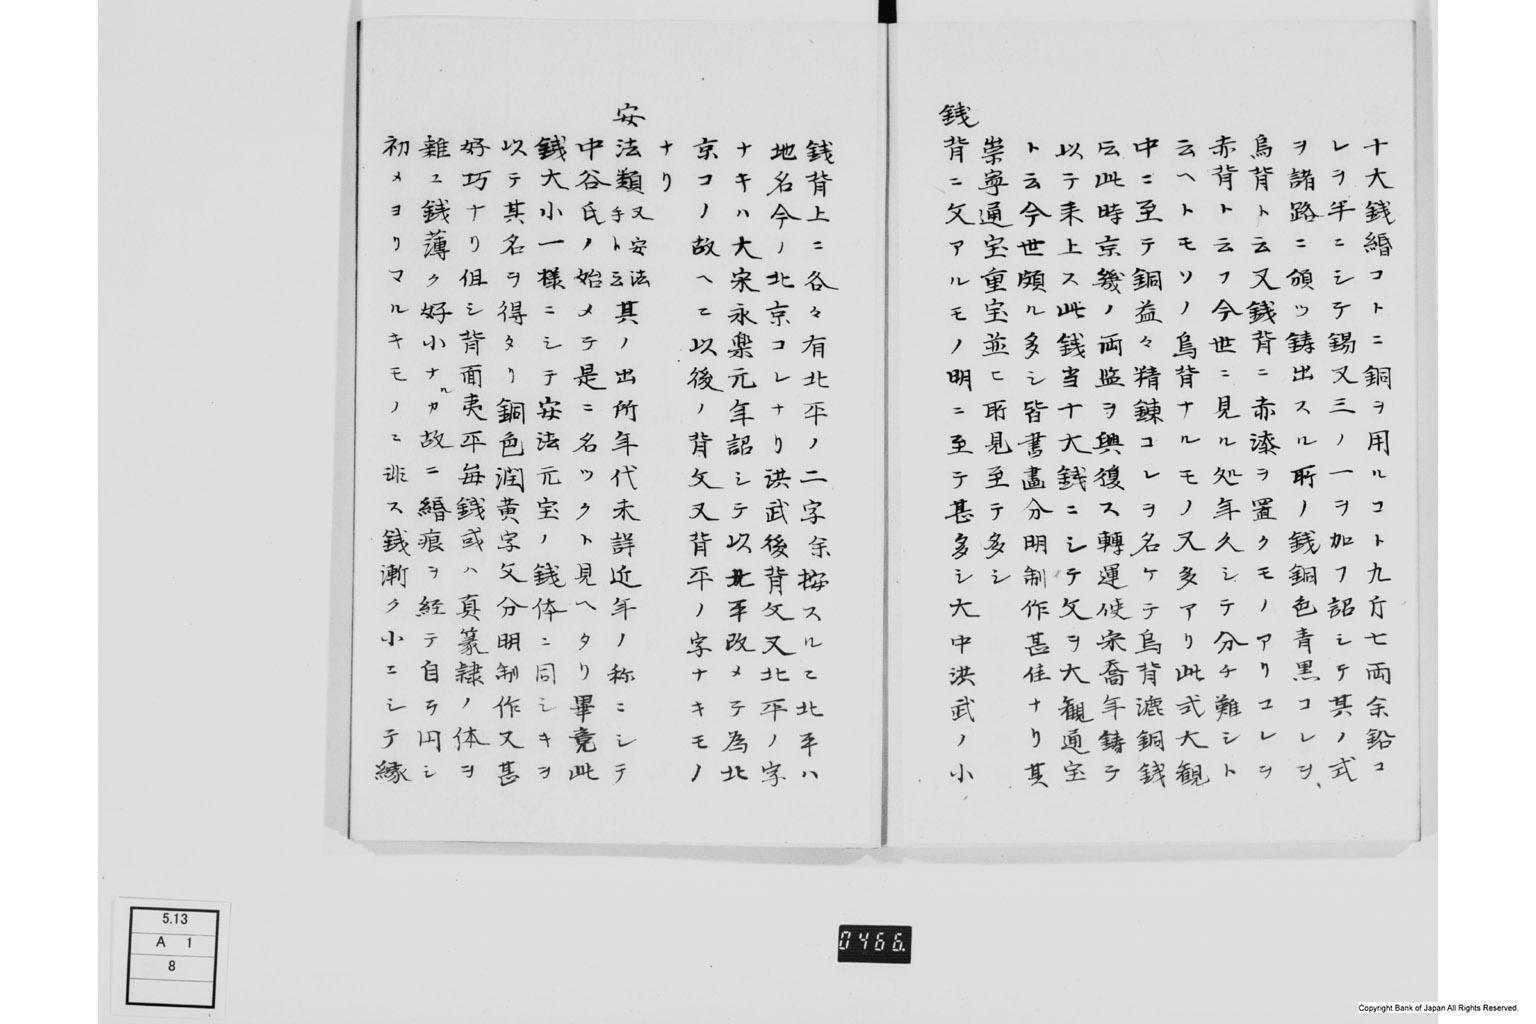 十大銭緡コトニ銅ヲ用ルコト九斤七両余鉛コ
レヲ半ニシテ錫又三ノ一ヲ加フ詔シテ其ノ式
ヲ諸路ニ頒ッ鋳出スル所ノ銭銅色青黒コレヲ
烏背ト云又銭背ニ赤漆ヲ置クモノアリコレヲ
赤背ト云フ今世ニ見ル処年久シテ分チ難シト
云ヘトモソノ烏背ナルモノ又多アリ此式大観
中ニ至テ銅益々精錬コレヲ名ケテ烏背漉銅銭
云此時京畿ノ両監ヲ興復ス轉運使宋喬年鋳テ
以テ来上ス此銭当十大銭ニシテ文ヲ大観通宝
ト云今世頗ル多シ皆書畫分明制作甚佳ナリ其
崇寧通宝重宝並ヒ所見至テ多シ
銭
背ニ文アルモノ明ニ至テ甚多シ大中洪武ノ小
銭背上ニ各々有北平ノ二字余按スルニ北平ハ
地名今ノ北京コレナリ洪武後背文又北平ノ字
ナキハ大宋永楽元年詔シテ以北平改メテ為北
京コノ故ヘニ以後ノ背文又背平ノ字ナキモノ
ナリ
安
法類又安法手ト云其ノ出所年代未詳近年ノ称ニシテ
中谷氏ノ始メテ是ニ名ツクト見ヘタリ畢竟此
銭大小一様ニシテ安法元宝ノ銭体ニ同シキヲ
以テ其名ヲ得タリ銅色潤黄字文分明制作又甚
好巧ナリ但シ背面夷平毎銭或ハ真篆隷ノ体ヲ
雑ユ銭薄ク好小ナルカ故ニ緡痕ヲ経テ自ラ円シ
初メヨリマルキモノニ非ス銭漸ク小ニシテ縁
5.13
A 1
8
0466.
Copyright Bank of Japan All Rights Reserved.